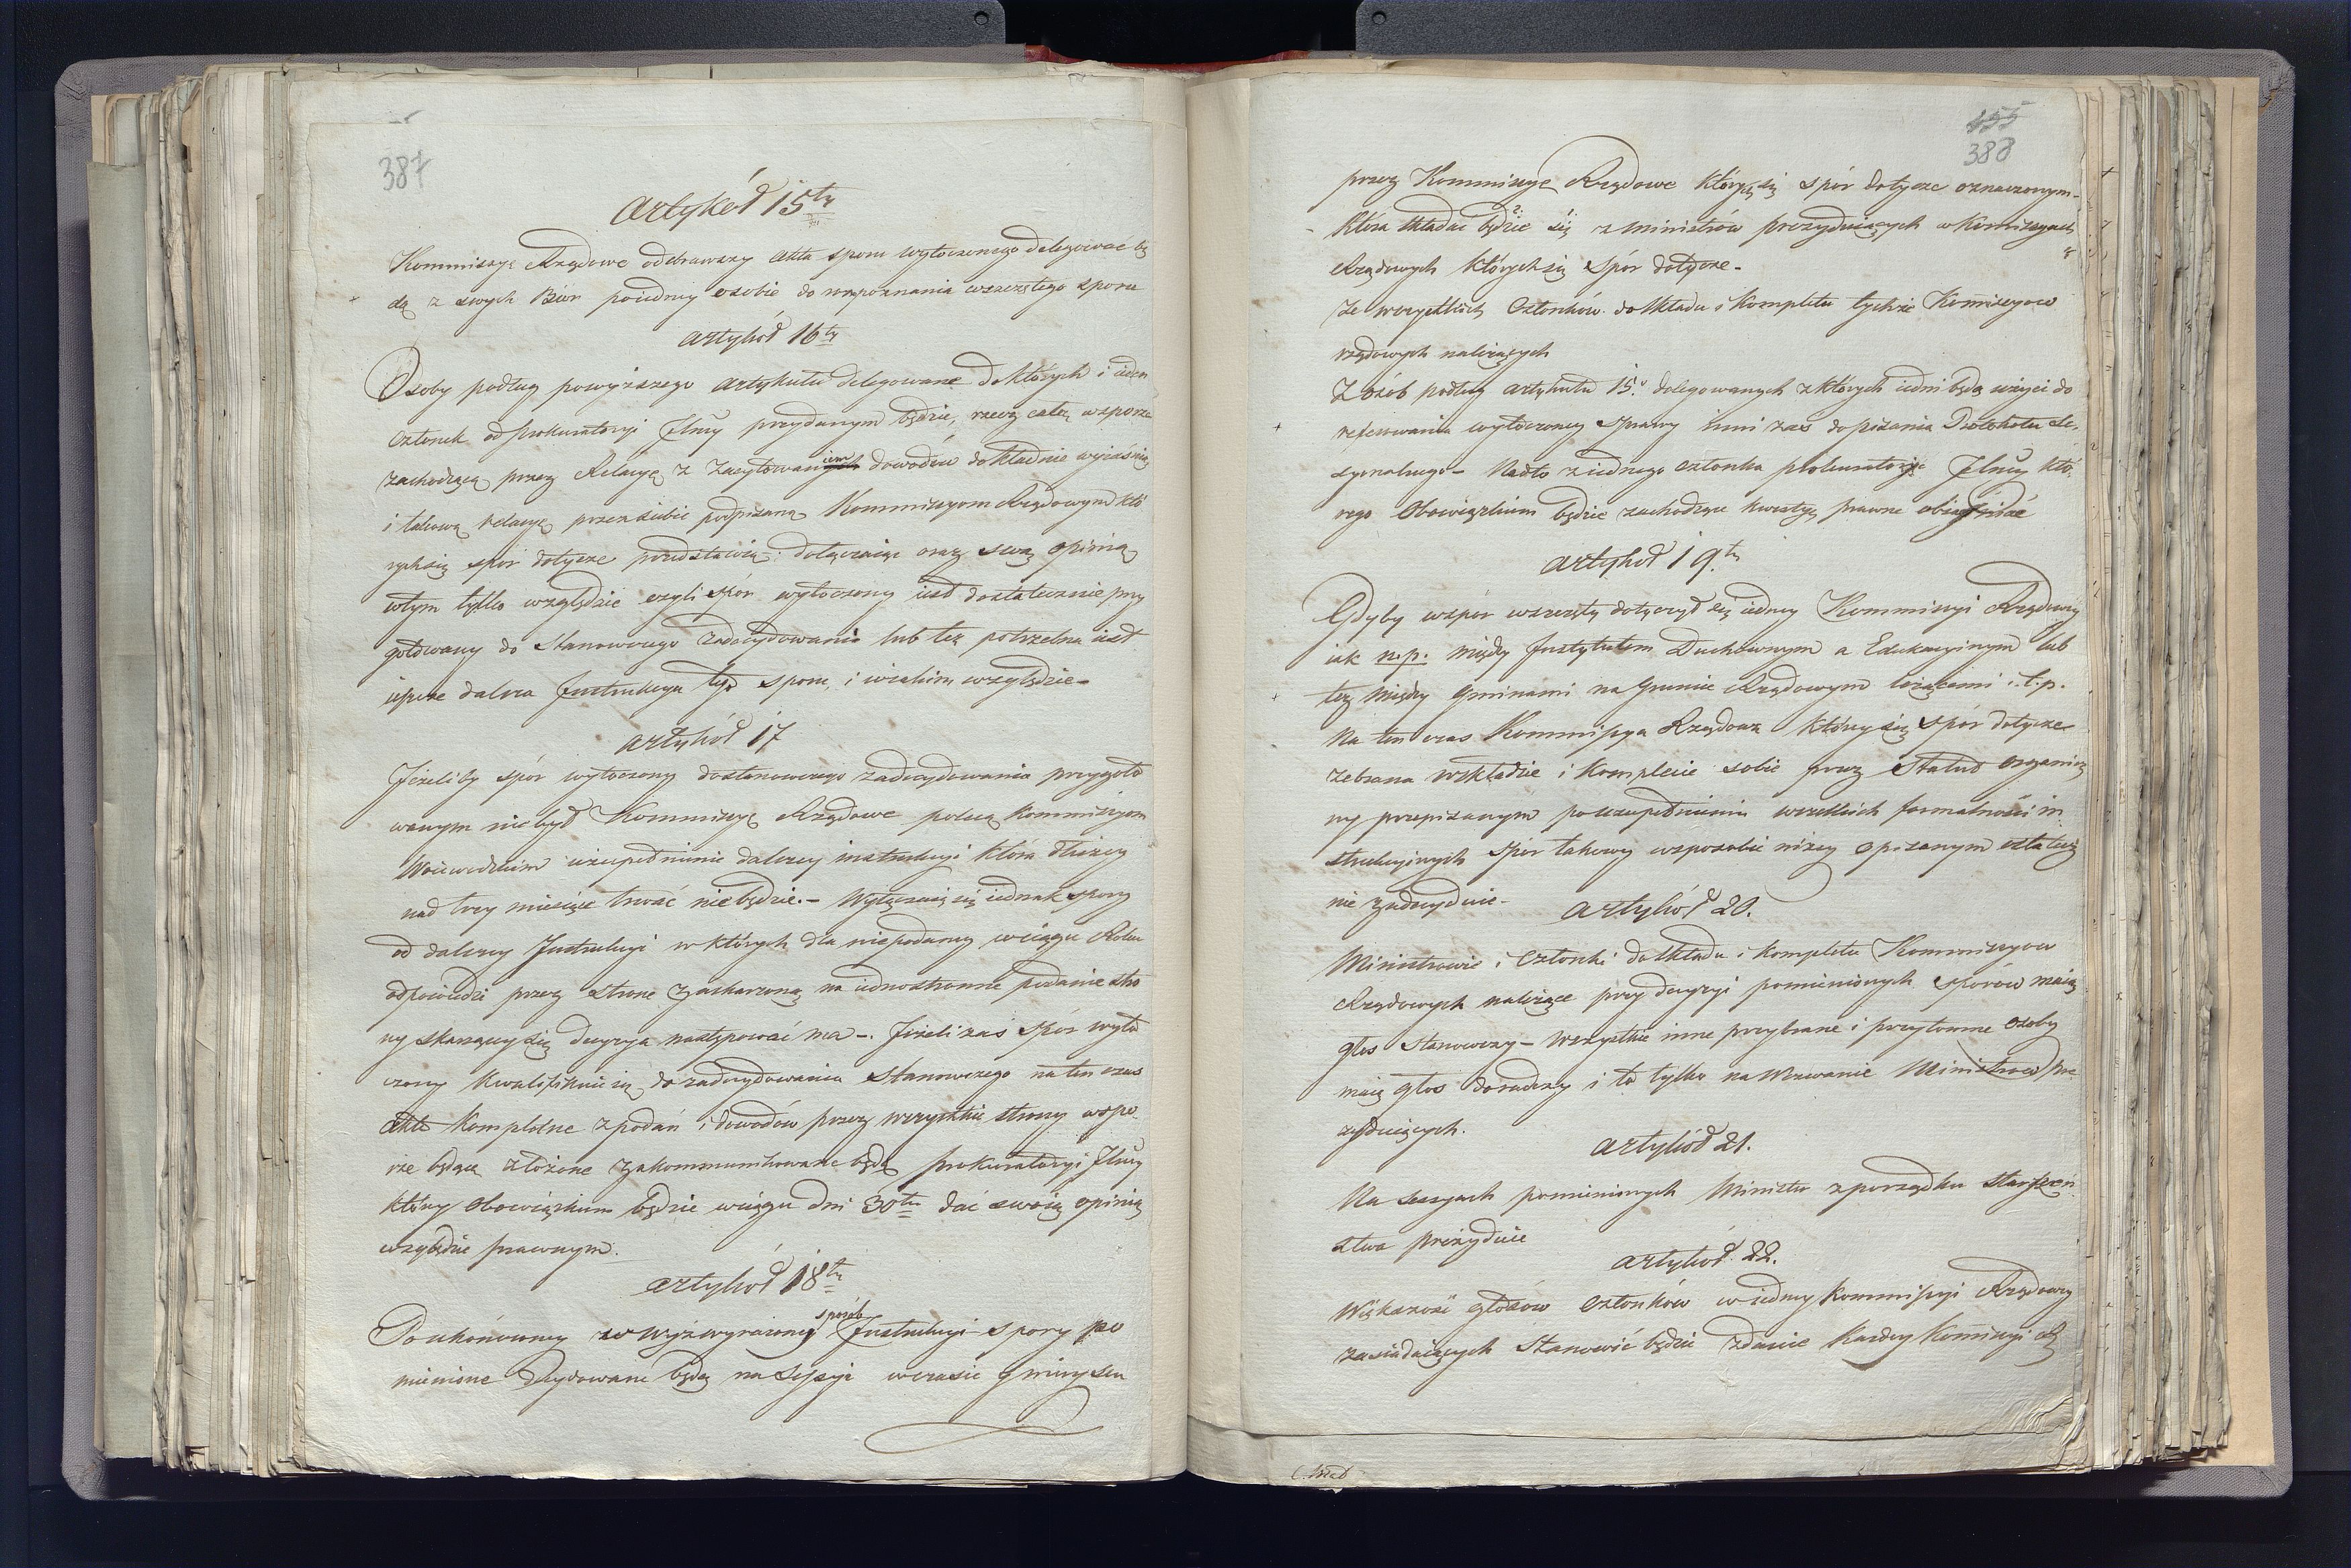 387
Artykół 15ty
Kommissye Rządowe odebrawszy akta sporu wytoczonego delegować bę
dą z swych Biór poiedney osobie do rozpoznania wszczętego sporu
Artykół 16ty
Osoby podług powyższego Artykułu delegowane do których i ieden
Członek od Prokuratoryi Jlney przydanym będzie, rzecz całą w sporze
zachodzącą przez Relacyę z zacytowaniem dowodów dokładnie wyiaśnią
i takową relacyę przez siebie podpisaną Kommissyom Rządowym któ
rych się spór dotycze przedstawią: dołączaiąc oraz swą opinią
wtym tylko względzie czyli spór wytoczony iest dostatecznie przy
gotowany do stanowczego zadecydowania lub też potrzebna iest
ieszcze dalsza Instrukcya tego sporu, i w iakim względzie -
Artykół 17
Jeżeliby spór wytoczony do stanowczego zadecydowania przygoto
wanym nie był Kommissye Rządowe polecą Kommissyom
Woiewódzkim uzupełnienie dalszey instrukcyi która dłużey
nad trzy miesiące trwać nie będzie. - Wyłączaią się iednak spory
od dalszey Instrukcyi w których dla niepodaney w ciągu Roku
odpowiedzi przez stronę zaskarżoną na iednostronne podanie stro
ny skarżącey się decyzya następować ma -. Jeżeli zaś spór wyto
czony kwalifikuie się do zadecydowania stanowczego na ten czas
akta kompletne z podań i dowodów przez wszystkie strony w spo
rze będące złożone zakommunikowane będą Prokuratoryi Jlney
którey obowiązkiem będzie w ciągu dni 30tu dać swoią opinią
względzie prawnym.
Artykół 18ty
Po ukończoney w wyż wyrażony sposób Instrukcyi spory po
mienione decydowane będą na Sessyi w czasie gminy ten
455
388
przez Kommissye Rządowe których się spór dotycze oznaczonym -
która składać będzie się z Ministrów prezyduiących w Kommissyach
Rządowych których się spór dotycze -
Ze wszystkich Członków do składu i kompletu tychże Kommissyow
rządowych należących
Z osób podług artykułu 15o delegowanych z których iedni będą użyci do
referowania wytoczoney sprawy inni zaś do pisania Protokołu Se-
syonalnego - Nadto z iednego członka prokuratoryi Jlney któ
rego obowiązkiem będzie zachodzące kwestye prawne obiaśniać
Artykół 19ty
Gdyby wspór wszczęty dotyczył się iedney Kommissyi Rządowey
iak n.p. między Instytutem Duchownym a Edukacyinym lub
też między gminami na Gruncie Rządowym leżącemi i t.p.
Na ten czas Kommissya Rządowa którey się spór dotycze
zebrana w składzie i komplecie sobie przez Statut organicz
ny przepisanym po uzupełnieniu wszelkich formalności in
strukcyinych spór takowy w sposobie niżey opisanym ostatecz
nie zadecyduie -
Artykół 20.
Ministrowie i Członki do składu i kompletu Kommissyow
Rządowych należące przy decyzyi pomienionych sporów maią
głos stanowczy - Wszystkie inne przybrane i przytomne osoby
maią głos doradczy i to tylko na wezwanie Ministrów pre-
zyduiących.
Artykół 21.
Na sessyach pomienionych Minister z porządku starszeń
stwa prezyduie
Artykół 22.
Większość głosów członków w iedney Kommissyi Rządowey
zasiadaiących stanowić będzie zdanie każdey Kommissyi